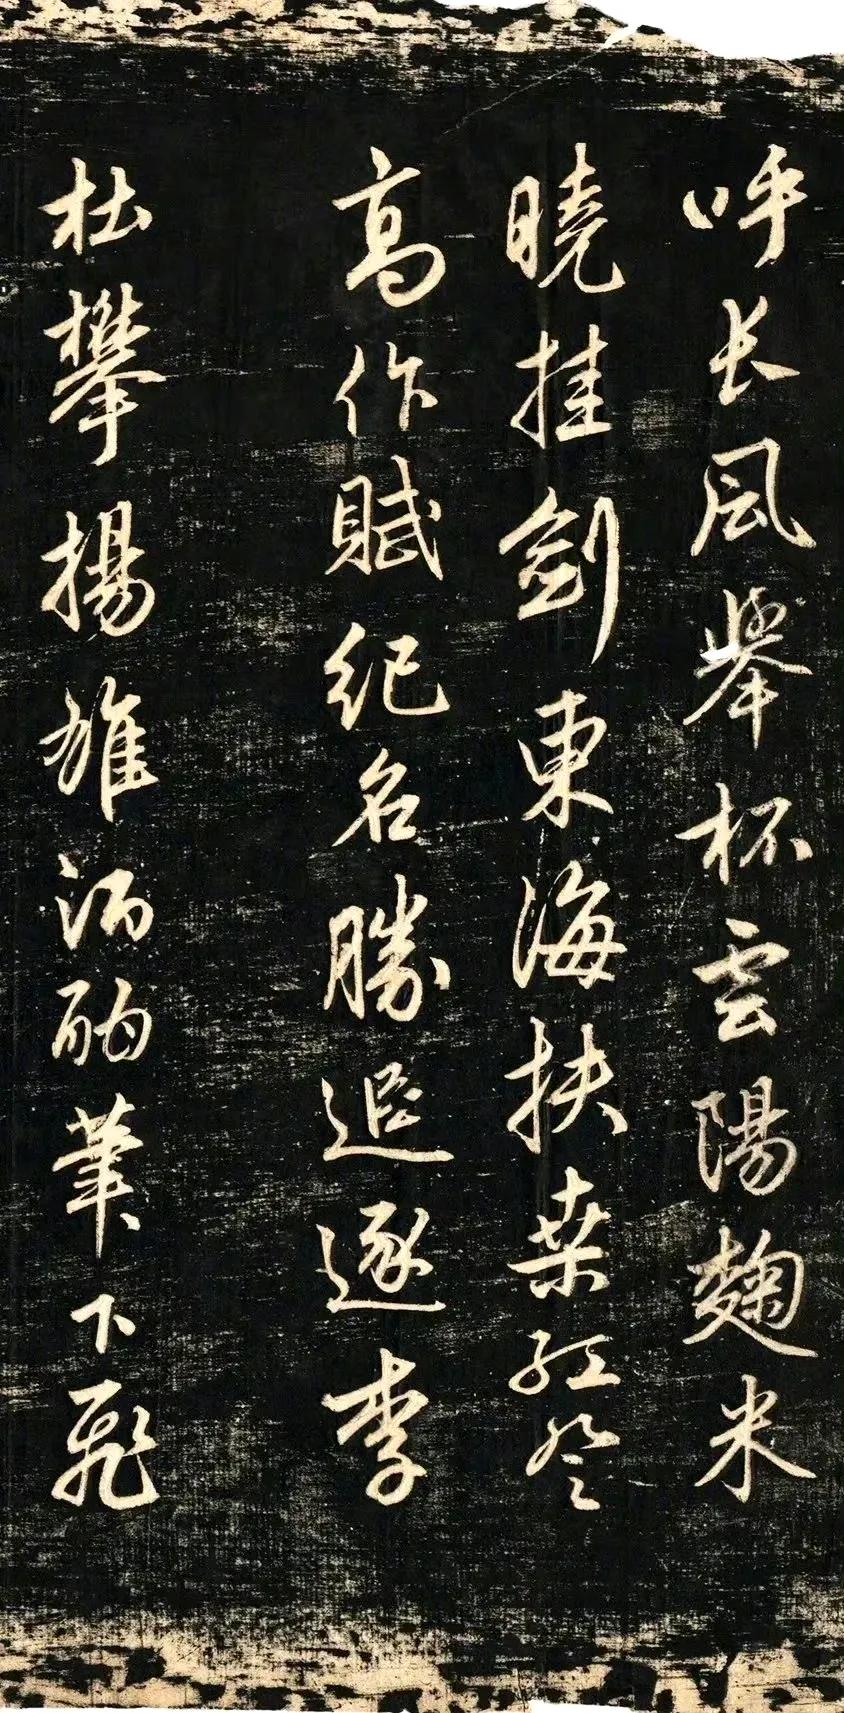 呼長風舉杯雲陽麴米
曉挂劍東海扶桑紅登
高作賦紀名勝追逐李
杜攀揚雄酒酣筆下飛